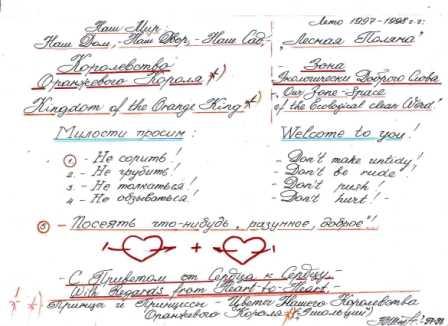 Наш Мир:
Наш Дом, - Наш Двор, - Наш Сад,-
Королевства
Оранжевого Короля *)
Kingdom of the Orange King *)
Лето 1997-1998 г.г.
"Лесная Поляна"
- Зона
Экологически Доброго Слова
- Our Zone-Space
of the Ecological clean Word.
Милости просим:
1 - Не сорить!
2 - Не грубить!
3 - Не толкаться!
4 - Не обзываться!
Welcome to you!
- Don't make untidy!
- Don't be rude!
- Don't push!
- Don't hurt! -
5 - Посеять что-нибудь "разумное, доброе"!
+
- С Приветом от Сердца к Сердцу -
With Regards from Heart-to-Heart.-
*) Принцы и Принцессы - Цветы Нашего Королевства
Оранжевого Короля